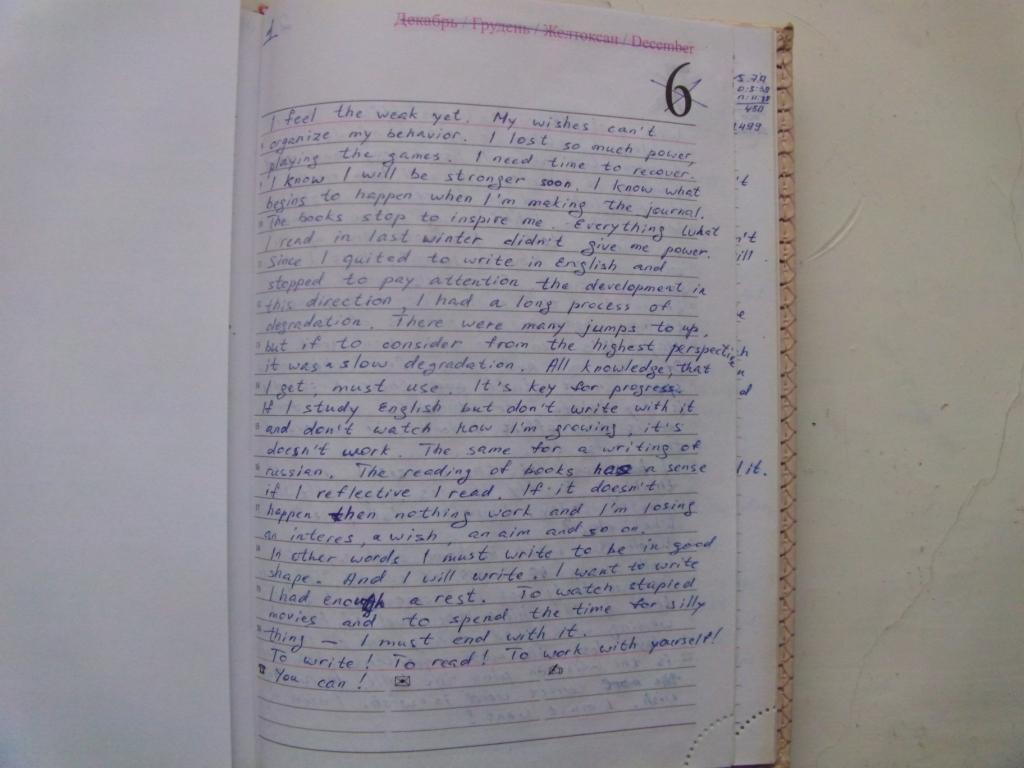 1.
Декабрь / Грудень / Желтоксан / December
6
I feel the weak yet. My wishes can't
organize my behavior. I lost so much power,
playing the games. I need time to recover.
I know I will be stronger soon. I know what
begins to happen when I'm making the journal.
The books stop to inspire me. Everything what
I read in last winter didn't give me power.
Since I quited to write in English and
stopped to pay attention the development in
this direction, I had a long process of
degradation. There were many jumps to up,
but if to consider from the highest perspective
it was a slow degradation. All knowledge, that
I get, must use. It's key for progress.
If I study English but don't write with it
and don't watch how I'm growing, it's
doesn't work. The same for a writing of
russian. The reading of books has a sense
if I reflective I read. If it doesn't
happen then nothing work and I'm losing
an interes, a wish, an aim and so on.
In other words I must write to be in good
shape. And I will write. I want to write
I had enough a rest. To watch stupied
movies and to spend the time for silly
thing — I must end with it.
To write! To read! To work with yourself!
You can!
450
2499
't
n't
ill
e
h
n
d
it.